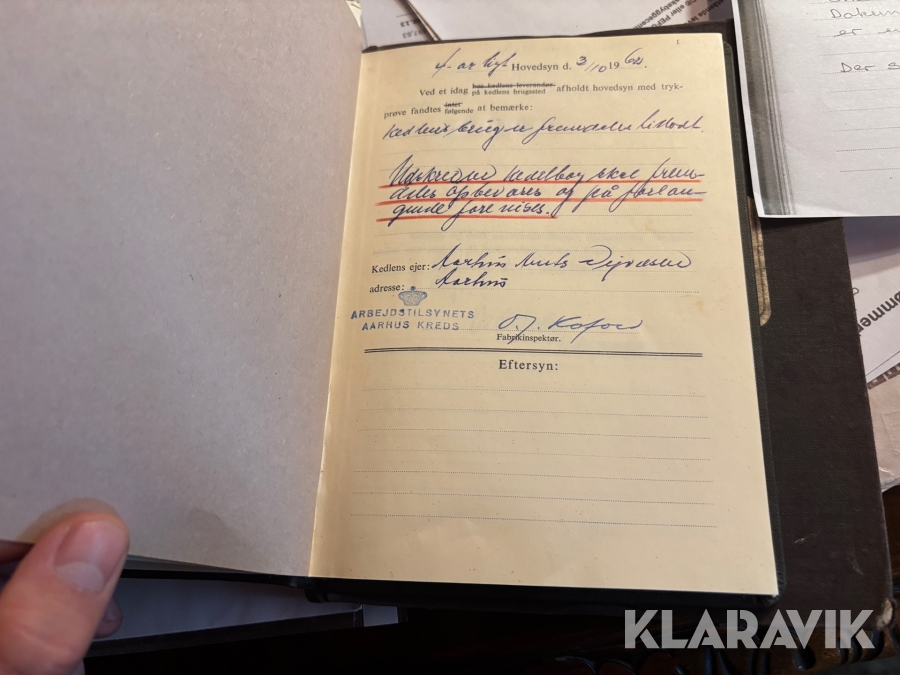 1
Hovedsyn d. 3/10 1962.
Ved et idag hos kedlens leverandør. på kedlens brugssted afholdt hovedsyn med tryk-
prøve fandtes intet følgende at bemærke:
Kedlens brug er fremdeles tilladt.
Udskrevne kedelbog skal frem-
deles opbevares og på forlan-
gende forevises.
Kedlens ejer: Aarhus Amts
adresse: Aarhus
ARBEJDSTILSYNETS
AARHUS KREDS
O. J. Kofoed
Fabrikinspektør.
Eftersyn:
Dokum
er
Der s
omment
KLARAVIK